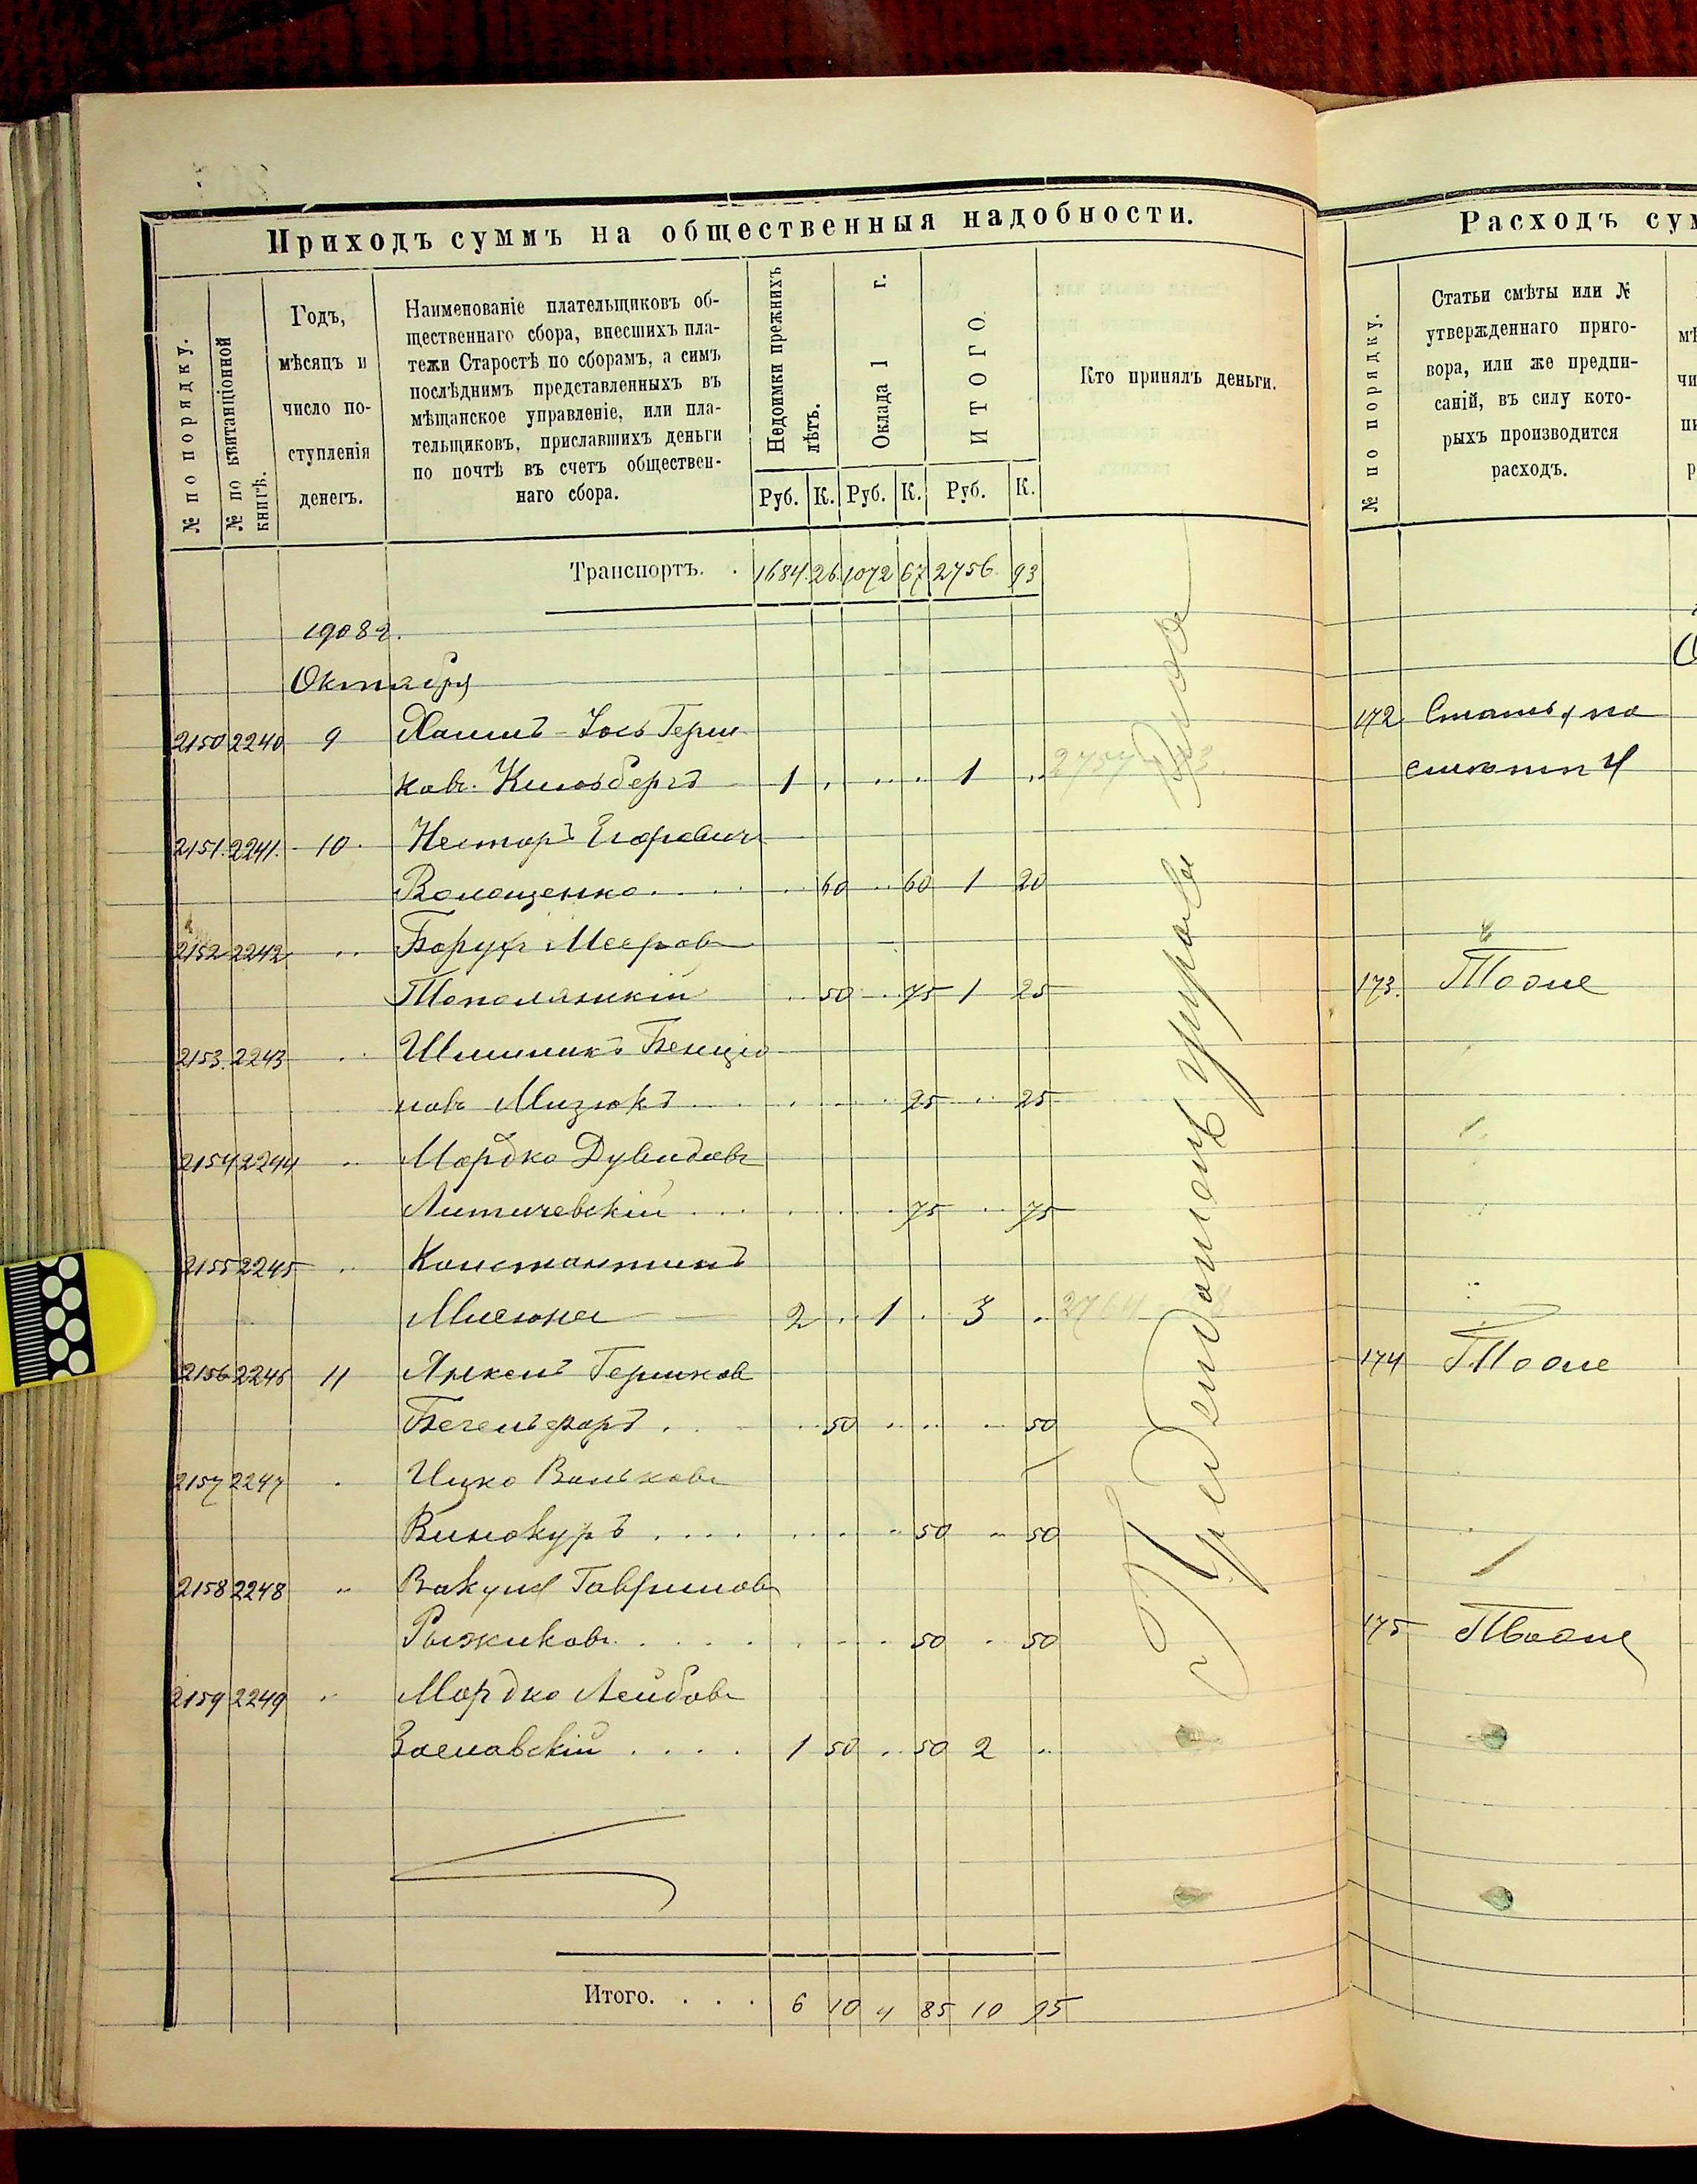 Приходъ суммъ на общественныя надобности.
№ по порядку.
№ по квитанціонной книгѣ.
Годъ,
мѣсяцъ и
число по-
ступленія
денегъ.
Наименованіе плательщиковъ об-
щественнаго сбора, внесшихъ пла-
тежи Старостѣ по сборамъ, а симъ
послѣднимъ представленныхъ въ
мѣщанское управленіе, или пла-
тельщиковъ, приславшихъ деньги
по почтѣ въ счетъ обществен-
наго сбора.
Недоимки прежнихъ
лѣтъ.
Оклада 1 г.
ИТОГО.
Кто принялъ деньги.
Руб. К. Руб. К. Руб. К.
Транспортъ. . 1684 26 1072 67 2756 93
1908 г.
Октября
2150 2240 9 Хаимъ-Іось Герш
ковъ 1 1
2151 2241 10 Несторъ Егоровичъ
Волощенко 60 60 1 20
2152 2242 Борухъ Мееровъ
50 75 1 25
2153 2243 Бенціо
новъ Мизюкъ 25 25
2154 2244 Мордко Дувидовъ
Литичевскій 75 75
2155 2245 Константинъ
2 1 3
2156 2246 11 Янкель Гершковъ
50 50
2157 2247 Ицко Вольковъ
Винокуръ 50 50
2158 2248 Вакула Гавриловъ
Рыжиковъ 50 50
2159 2249 Мордко Лейбовъ
Заславскій 1 50 50 2
Итого. . . . 6 10 4 85 10 95
Расходъ сум
№ по порядку.
Статьи смѣты или №
утвержденнаго приго-
вора, или же предпи-
саній, въ силу кото-
рыхъ производится
расходъ.
172
173. Тоже
174 Тоже
175 Тоже